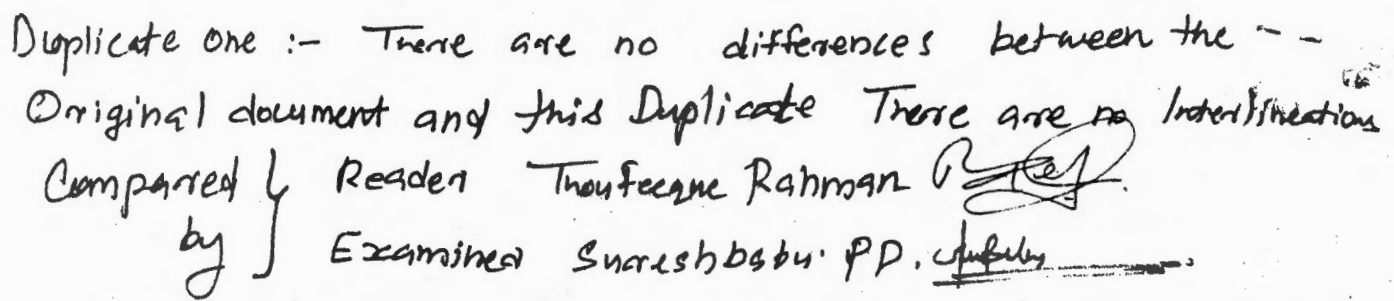 Duplicate one :- There are no differences between the - -
Original document and this Duplicate There are no Interlineations
Compared by } Reader Thoufeeque Rahman
Examiner Sureshbabu. P D.